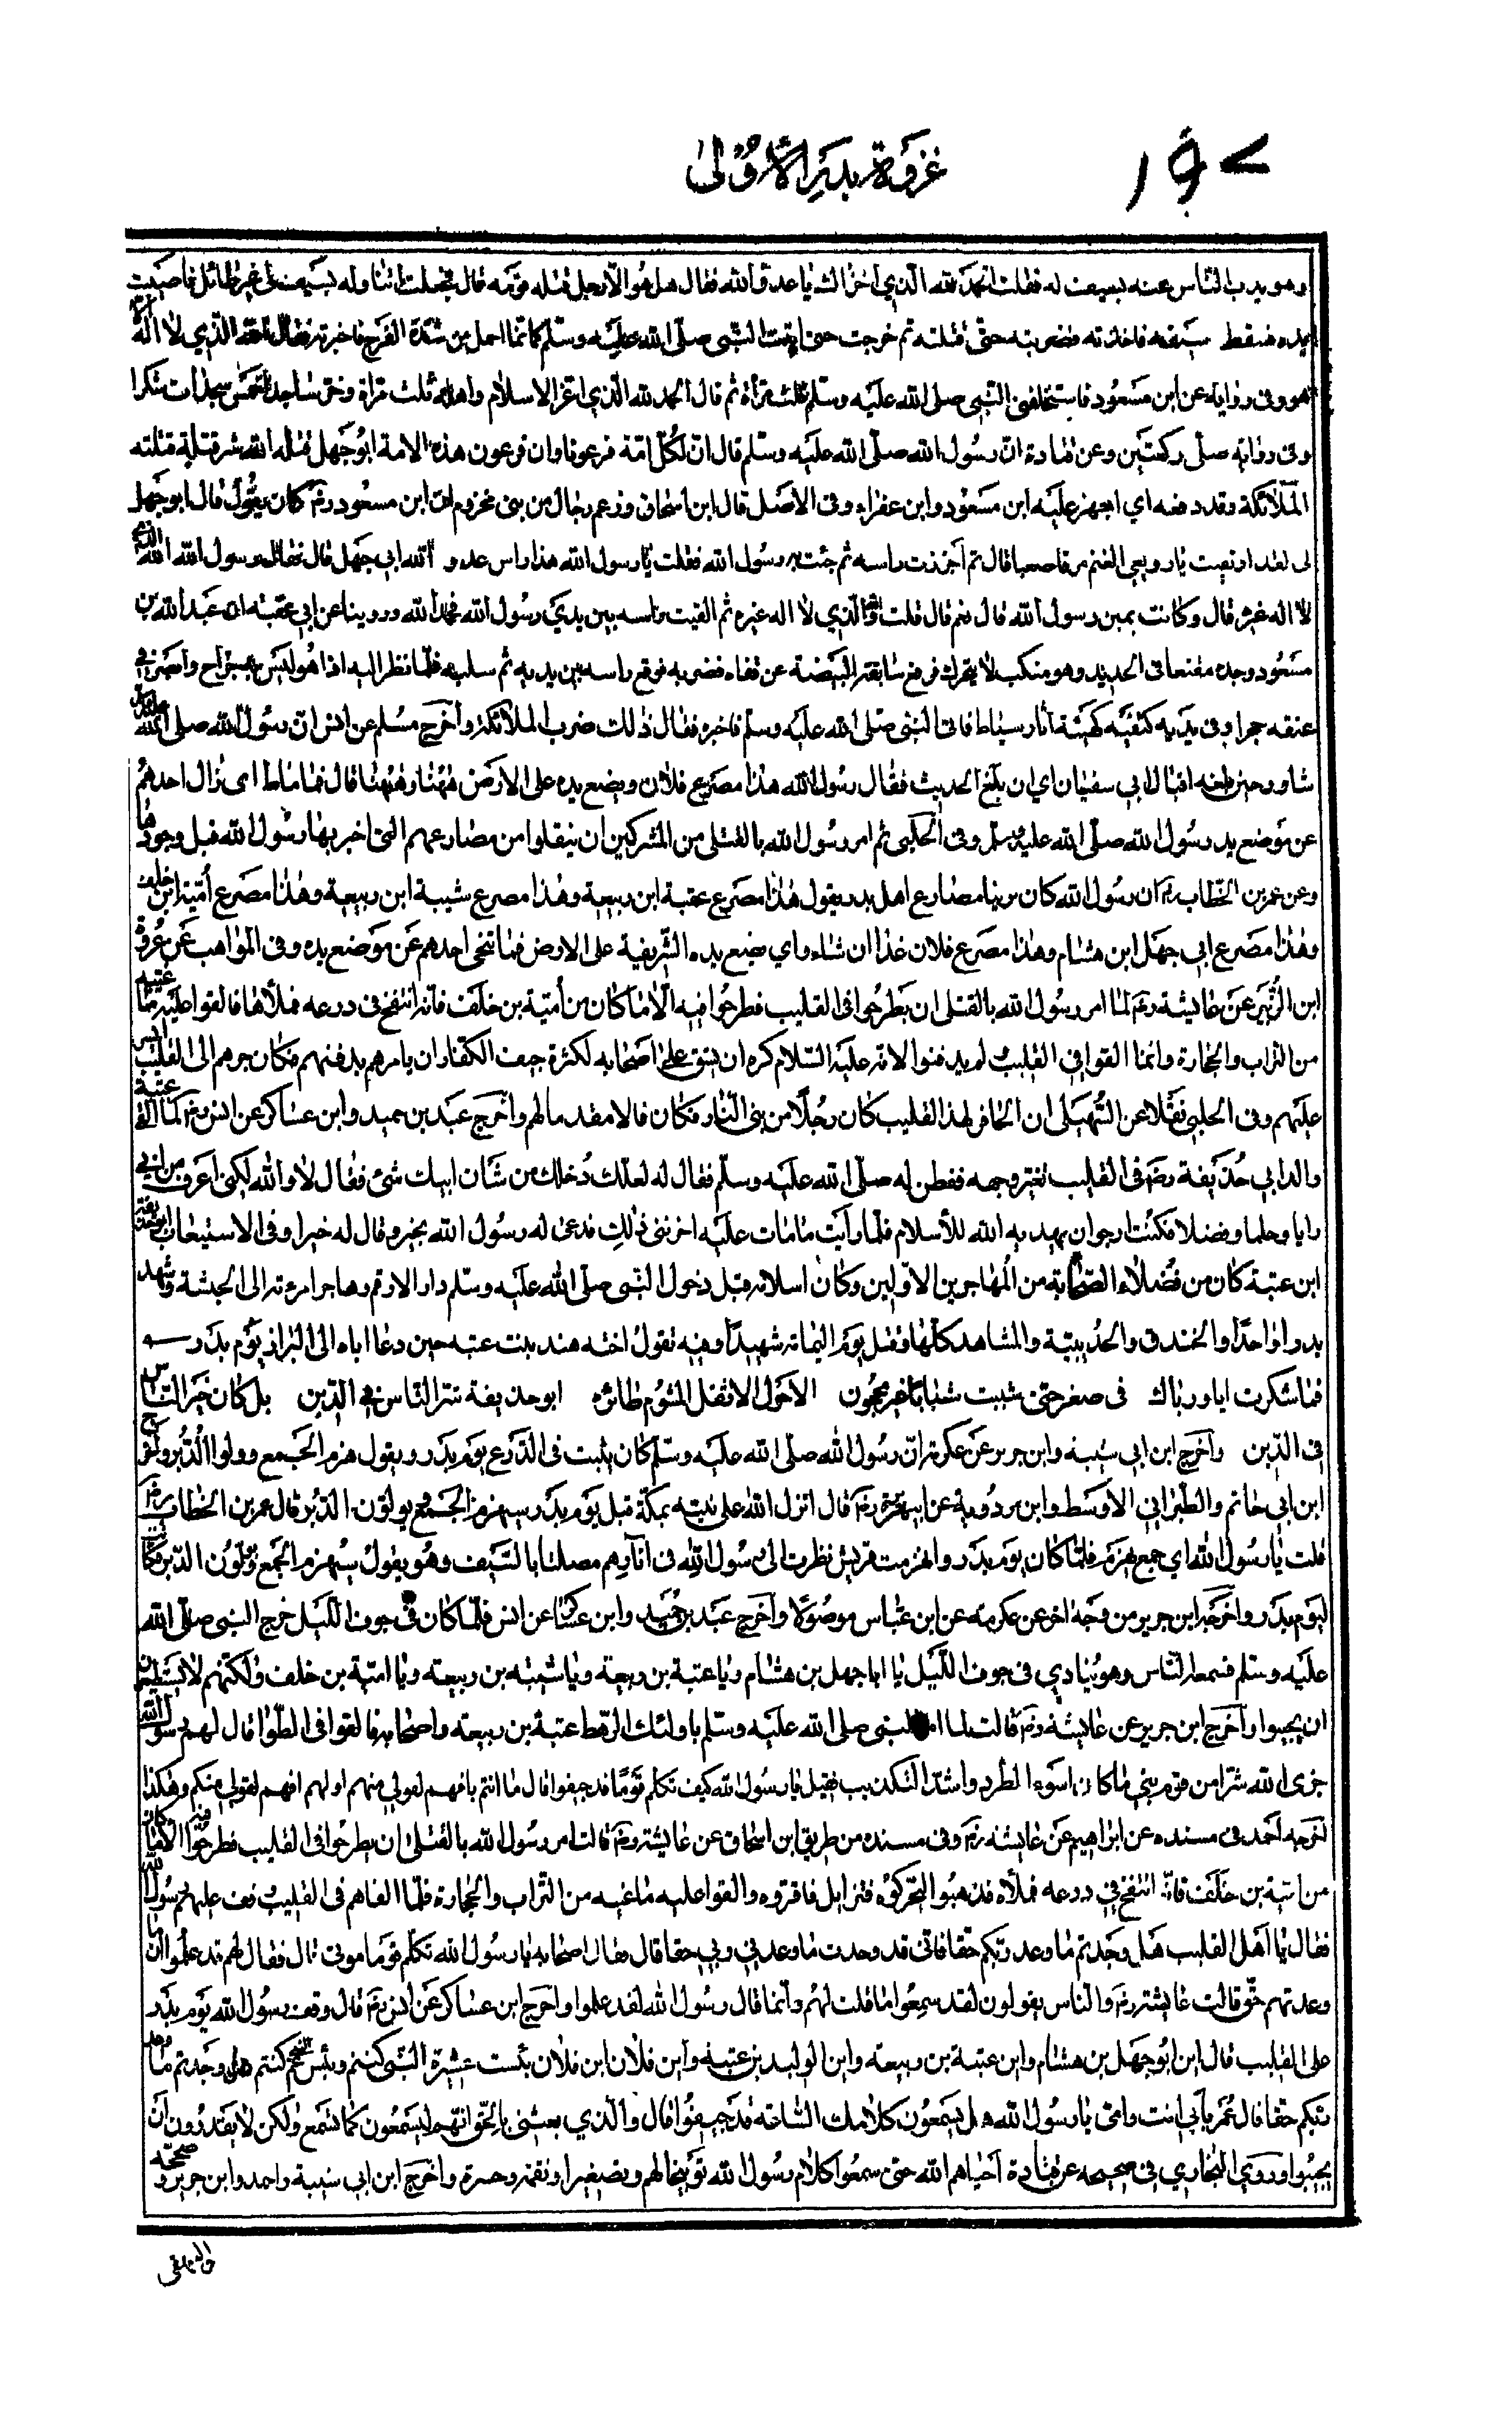 ١٩٧
غزوة بدر الأولى
وهو يدب الناس عنه بسيف له فقلت الحمد لله الذي اخزاك يا عدو الله فقال هل هو الا رجل قتله قومه قال فجعلت اتناوله بسيف لي غير طائل فاصبت
يده فسقط سيفه فاخذته فضربته حتى قتلته ثم خرجت حتى اتيت النبي صلى الله عليه وسلم كانما احمل من شدة الفرح فاخبرته فقال الله الذي لا اله الا
هو وفي رواية عن ابن مسعود فاستحلفني النبي صلى الله عليه وسلم ثلث مرأة ثم قال الحمد لله الذي اعز الاسلام واهله ثلث مراة وخر ساجدا خمس سجدات شكرا
وفي رواية صلى ركعتين وعن قتادة ان رسول الله صلى الله عليه وسلم قال ان لكل امة فرعونا وان فرعون هذه الامة ابو جهل قتله الله شر قتلة قتلته
الملائكة وقد دفه اي اجهز عليه ابن مسعود وابن عفراء وفي الاصل قال ابن اسحاق وزعم رجال من بني مخزوم ان ابن مسعود رضه كان يقول قال ابو جهل
لي لقد ارتقيت يا رويعي الغنم مرقا صعبا قال ثم اجتززت راسه ثم جئت به رسول الله فقلت يا رسول الله هذا راس عدو الله ابي جهل قال فقال رسول الله الله الذي
لا اله غيره قال وكانت يمين رسول الله قال نعم قال قلت والله الذي لا اله غيره ثم القيت راسه بين يدي رسول الله فحمد الله وروينا عن ابي عقبة ان عبد الله بن
مسعود وجده مقنعا في الحديد وهو منكب لا يتحرك فرفع سابغة البيضة عن قفاه فضربه فوقع راسه بين يديه ثم سلبه فلما نظر اليه اذا هو ليس به جراح وابصر في
عنقه حدرا وفي يديه كتفيه كهيئة اثار سياط فاتى النبي صلى الله عليه وسلم فاخبره فقال ذلك ضرب الملائكة واخرج مسلم عن انس ان رسول الله صلى الله عليه وسلم
شاور حين بلغه اقبال ابي سفيان اي ان بلغ الحديث فقال رسول الله هذا مصرع فلان ويضع يده على الارض ههنا وههنا قال فما ماط اي زال احدهم
عن موضع يد رسول الله صلى الله عليه وسلم وفي الحلبي ثم امر رسول الله بالقتلى من المشركين ان ينقلوا من مصارعهم التي اخبر بها رسول الله قبل وجودها
وعن عمر بن الخطاب رضه ان رسول الله كان يرينا مصارع اهل بدر يقول هذا مصرع عتبة ابن ربيعة وهذا مصرع شيبة ابن ربيعة وهذا مصرع أمية ابن خلف
وهذا مصرع ابي جهل ابن هشام وهذا مصرع فلان غدا ان شاء واي يضع يده الشريفة على الارض فما تنحى احدهم عن موضع يده وفي المواهب عن عروة
ابن الزبير عن عايشة رضه لما امر رسول الله بالقتلى ان يطرحوا في القليب فطرحوا فيه الا ما كان من أمية بن خلف فانه انتفخ في درعه فملأها فالقوا عليه ما غيبه
من التراب والحجارة وانما القوا في القليب لم يدفنوا لانه عليه السلام كره ان يشق على اصحابه لكثرة جيف الكفار ان يامرهم بدفنهم فكان جرهم الى القليب ايسر
عليهم وفي الحلبي نقلا عن السهيلي ان الحافر لهذا القليب كان رجلا من بني النار فكان فالا مقدما لهم واخرج عبد بن حميد وابن عساكر عن انس رضه لما القي عتبة
والد ابي حذيفة رضه في القليب تغير وجهه ففطن له صلى الله عليه وسلم فقال له لعلك دخلك من شان ابيك شئ فقال لا والله لكني اعرف من ابي
رايا وحلما وفضلا فكنت ارجو ان يهديه الله للأسلام فلما رأيت ما مات عليه احزنني ذلك فدعى له رسول الله بخير وقال له خيرا وفي الاستيعاب ابو حذيفة
ابن عتبة كان من فضلاء الصحابة من المهاجرين الاولين وكان اسلامه قبل دخول النبي صلى الله عليه وسلم دار الارقم وهاجر امرءته الى الحبشة وشهد
بدرا واحدا والخندق والحديبية والمشاهد كلها وقتل يوم اليمامة شهيدا وفيه تقول اخته هند بنت عتبة حين دعا اباه الى البراز يوم بدر
فما شكرت ابا ورباك في صغر حتى شببت شبابا غير محجون الاحول الاثعل المشؤم طائره ابو حذيفة شر الناس في الدين بل كان خير الناس
في الدين واخرج ابن ابي شيبة وابن جرير عن عكرمة ان رسول الله صلى الله عليه وسلم كان يثبت في الدرع يوم بدر ويقول هزم الجمع وولوا الدبر واخرج
ابن ابي حاتم والطبراني الاوسط وابن مردوية عن ابي هريرة رضه قال انزل الله على نبيه بمكة قبل يوم بدر سيهزم الجمع ويولون الدبر قال عمر بن الخطاب رضه
قلت يا رسول الله اي جمع يهزم فلما كان يوم بدر وانهزمت قريش نظرت الى رسول الله في اثارهم مصلتا بالسيف وهو يقول سيهزم الجمع ويولون الدبر فكانت
ليوم بدر واخرجه ابن جرير من وجه اخر عن عكرمه عن ابن عباس موصولا واخرج عبد بن حميد وابن عساكر عن انس فلما كان في جوف الليل خرج النبي صلى الله
عليه وسلم فسمعه الناس وهو ينادي في جوف الليل يا ابا جهل بن هشام ويا عتبة بن ربيعة ويا شيبه بن ربيعته ويا امية بن خلف ولكنهم لا يستطيعون
ان يجيبوا واخرج ابن جرير عن عايشة رضه قالت لما امر النبي صلى الله عليه وسلم باولئك الرهط عتبة بن ربيعته واصحابه فالقوا في الطوا قال لهم رسول الله
جزى الله شرا من قوم نبي ما كان اسوء الطرد واشد التكذيب فقيل يا رسول الله كيف تكلم قوما قد جيفوا قال ما انتم بافهم لقولي منهم او لهم افهم لقولي منكم وهكذا
اخرجه احمد في مسنده عن ابراهيم عن عايشة رضه وفي مسنده من طريق ابن اسحاق عن عايشة رضه قالت امر رسول الله بالقتلى ان يطرحوا في القليب فطرحوا فيه الا ما كان
من امية بن خلف فانه انتفخ في درعه فملأه فذهبوا ليحركوه فتزايل فاقروه والقوا عليه ما غيبه من التراب والحجارة فلما القاهم في القليب وقف عليهم رسول الله
فقال يا اهل القليب هل وجدتم ما وعد ربكم حقا فاني قد وجدت ما وعدني ربي حقا قال فقال اصحابه يا رسول الله تكلم قوما موتى قال فقال لهم قد علموا ان ما
وعدتهم حق قالت عايشة رضه والناس يقولون لقد سمعوا ما قلت لهم وانما قال رسول الله لقد علموا واخرج ابن عساكر عن انس رضه قال وقف رسول الله يوم بدر
على القليب قال ابن ابو جهل بن هشام وابن عتبة بن ربيعته وابن الوليد بن عتبة وابن فلان ابن فلان بئست عشيرة النبي كنتم وبئس القوم كنتم هل وجدتم ما وعد
ربكم حقا قال عمر بأبي انت وامي يا رسول الله هل يسمعون كلامك الساعة قد جيفوا قال والذي بعثني بالحق انهم ليسمعون كما تسمع ولكن لا يقدرون ان
يجيبوا وروى البخاري في صحيحه عن قتادة احياهم الله حتى سمعوا كلام رسول الله توبيخا لهم وتصغيرا ونقمة وحسرة واخرج ابن ابي شيبة واحمد وابن جرير وصححه
والبيهقي